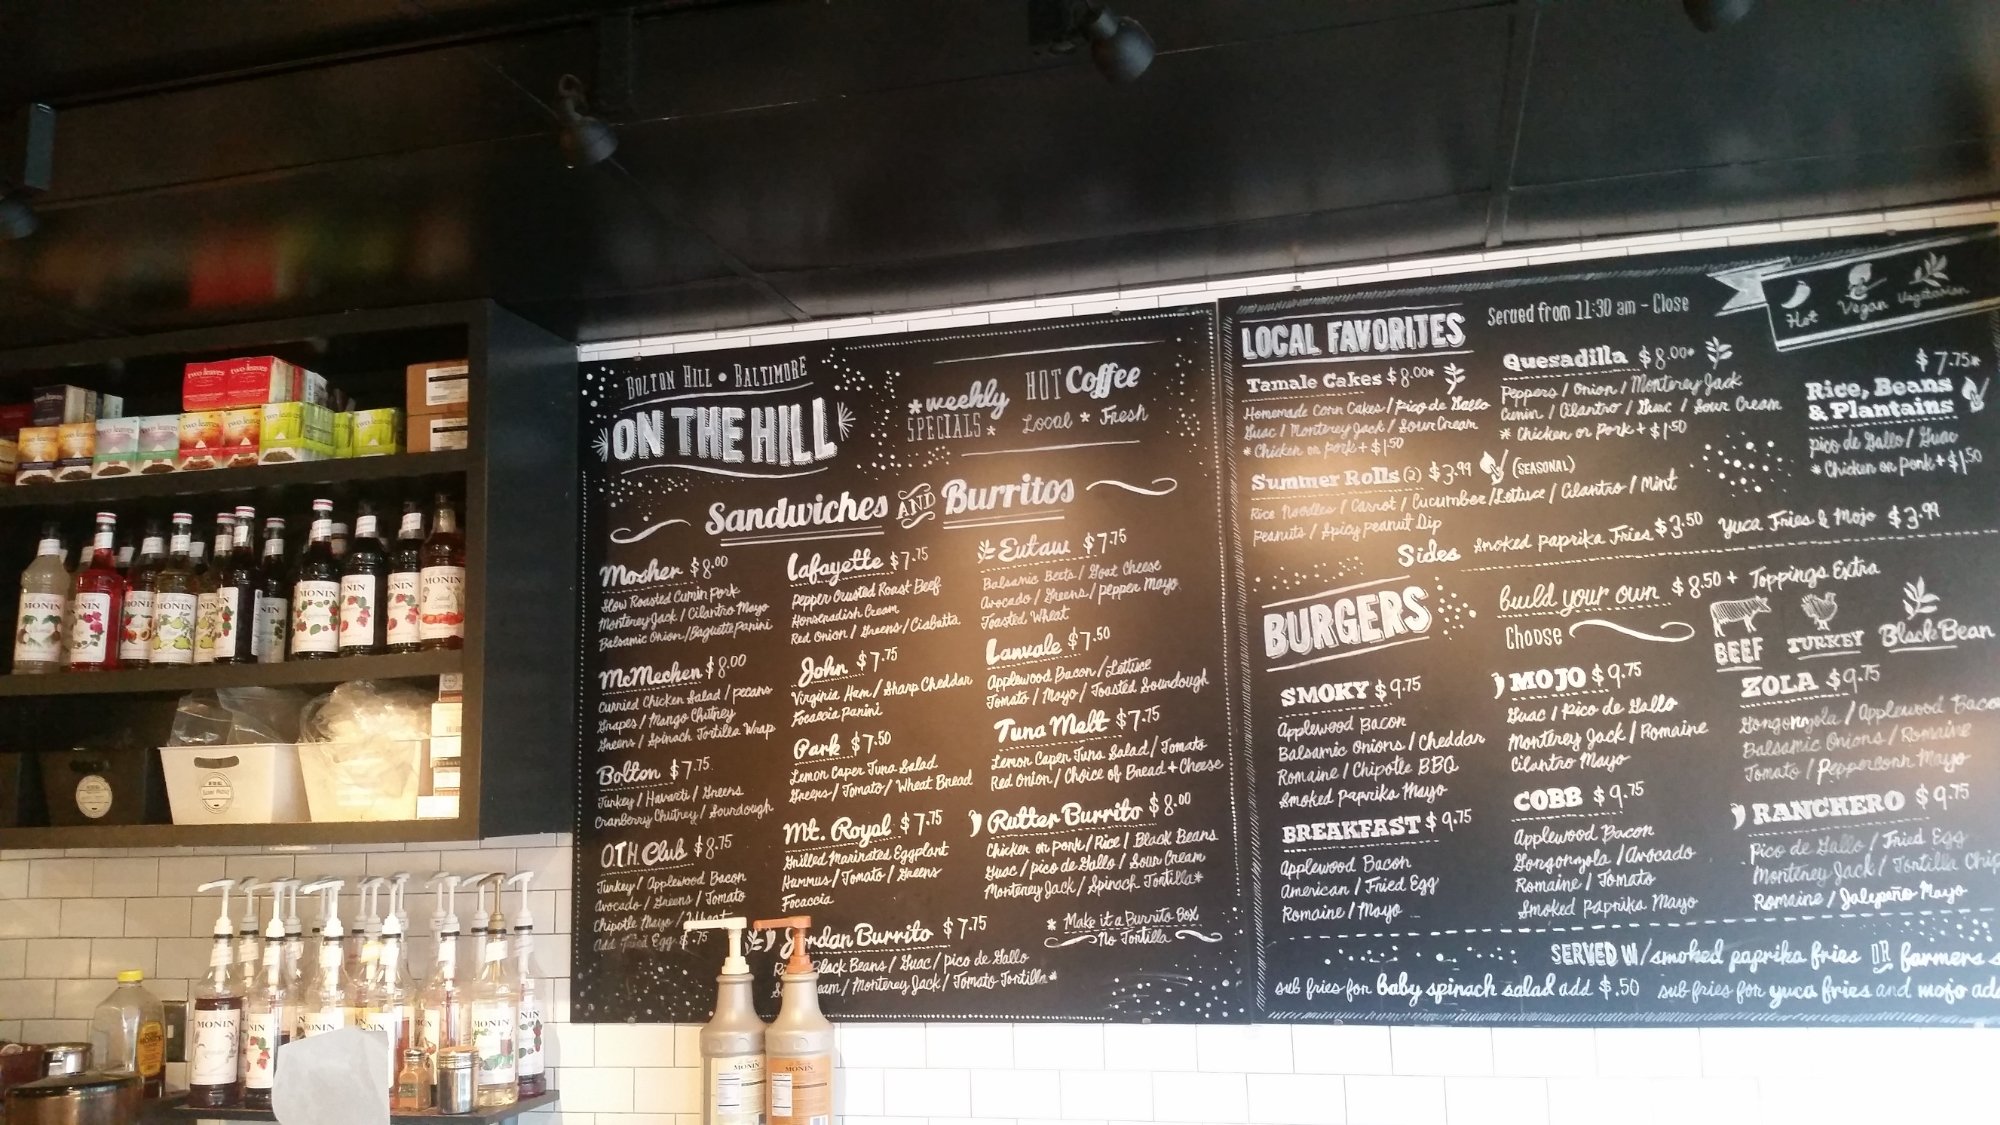 BOLTON HILL • BALTIMORE
ON THE HILL
*weekly
SPECIALS*
HOT Coffee
Local * Fresh
Sandwiches AND Burritos
Mosher $8.00
Slow Roasted Cumin Pork
Monterey Jack / Cilantro Mayo
Balsamic Onion / Baguette Panini
McMechen $8.00
Curried Chicken Salad / pecans
Grapes / Mango Chutney
Greens / Spinach Tortilla Wrap
Bolton $7.75
Turkey / Havarti / Greens
Cranberry Chutney / Sourdough
O.T.H. Club $8.75
Turkey / Applewood Bacon
Avocado / Greens / Tomato
Chipotle Mayo / Wheat
Add Fried Egg $.75
Lafayette $7.75
Pepper Crusted Roast Beef
Horseradish Cream
Red Onion / Greens / Ciabatta
John $7.75
Virginia Ham / Sharp Cheddar
Focaccia Panini
Park $7.50
Lemon Caper Tuna Salad
Greens / Tomato / Wheat Bread
Mt. Royal $7.75
Grilled Marinated Eggplant
Hummus / Tomato / Greens
Focaccia
Jordan Burrito $7.75
Black Beans / Guac / pico de Gallo
Monterey Jack / Tomato Tortilla*
Eutaw $7.75
Balsamic Beets / Goat Cheese
Avocado / Greens / pepper Mayo
Toasted Wheat
Lanvale $7.50
Applewood Bacon / Lettuce
Tomato / Mayo / Toasted Sourdough
Tuna Melt $7.75
Lemon Caper Tuna Salad / Tomato
Red Onion / Choice of Bread + Cheese
Rutter Burrito $8.00
Chicken or Pork / Rice / Black Beans
Guac / pico de Gallo / Sour Cream
Monterey Jack / Spinach Tortilla*
* Make it a Burrito Box
No Tortilla
LOCAL FAVORITES
Served from 11:30 am - Close
Hot
Vegan
Vegetarian
Tamale Cakes $8.00*
Homemade Corn Cakes / pico de Gallo
Guac / Monterey Jack / Sour Cream
* Chicken or pork + $1.50
Quesadilla $8.00*
Peppers / Onion / Monterey Jack
Cumin / Cilantro / Guac / Sour Cream
* Chicken or Pork + $1.50
$7.75*
Rice, Beans
& Plantains
pico de Gallo / Guac
* Chicken or pork + $1.50
Summer Rolls (2) $3.99 (SEASONAL)
Rice Noodles / Carrot / Cucumber / Lettuce / Cilantro / Mint
peanuts / Spicy peanut Dip
Sides Smoked paprika Fries $3.50 Yuca Fries & Mojo $3.99
BURGERS
build your own $8.50 + Toppings Extra
Choose
BEEF
TURKEY
Black Bean
SMOKY $9.75
Applewood Bacon
Balsamic Onions / Cheddar
Romaine / Chipotle BBQ
Smoked Paprika Mayo
BREAKFAST $9.75
Applewood Bacon
American / Fried Egg
Romaine / Mayo
MOJO $9.75
Guac / Pico de Gallo
Monterey Jack / Romaine
Cilantro Mayo
COBB $9.75
Applewood Bacon
Gorgonzola / Avocado
Romaine / Tomato
Smoked Paprika Mayo
ZOLA $9.75
Gorgonzola / Applewood Baco
Balsamic Onions / Romaine
Tomato / Peppercorn Mayo
RANCHERO $9.75
Pico de Gallo / Fried Egg
Monterey Jack / Tortilla Chip
Romaine / Jalepeño Mayo
SERVED W/ smoked paprika fries OR farmers
sub fries for baby spinach salad add $.50 sub fries for yuca fries and mojo ad
two leaves
two leaves
two leaves
MONIN
MONIN
MONIN
MONIN
MONIN
MONIN
MONIN
MONIN
MONIN
MONIN
MONIN
MONIN
MONIN
MONIN